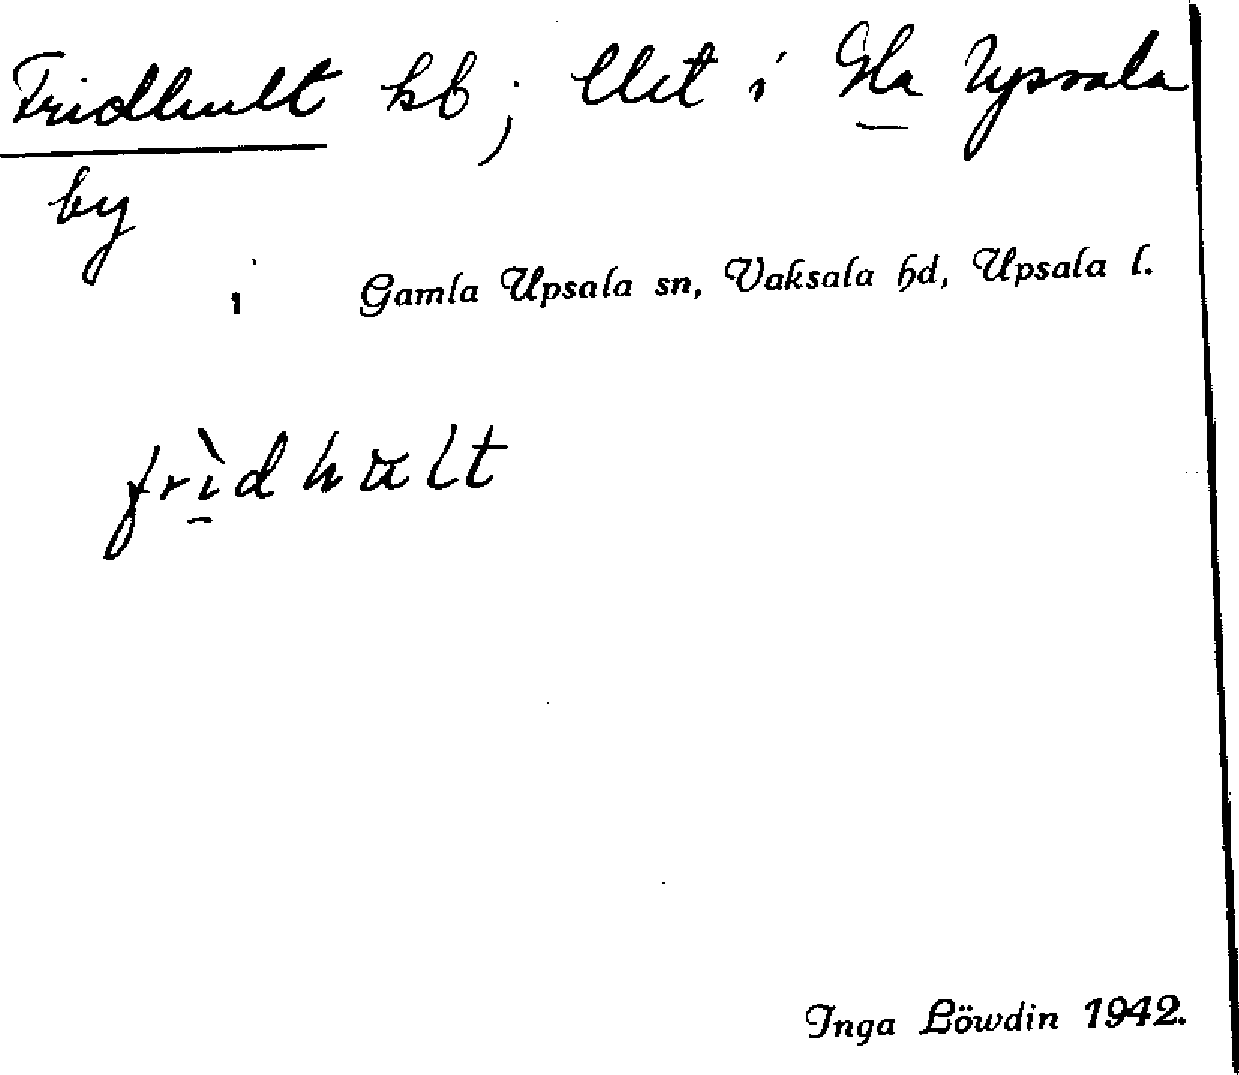 Fridhult kb; llet i Gla Upsala
by
i Gamla Upsala sn, Vaksala hd, Upsala l.
frìdhult
Inga Löwdin 1942.